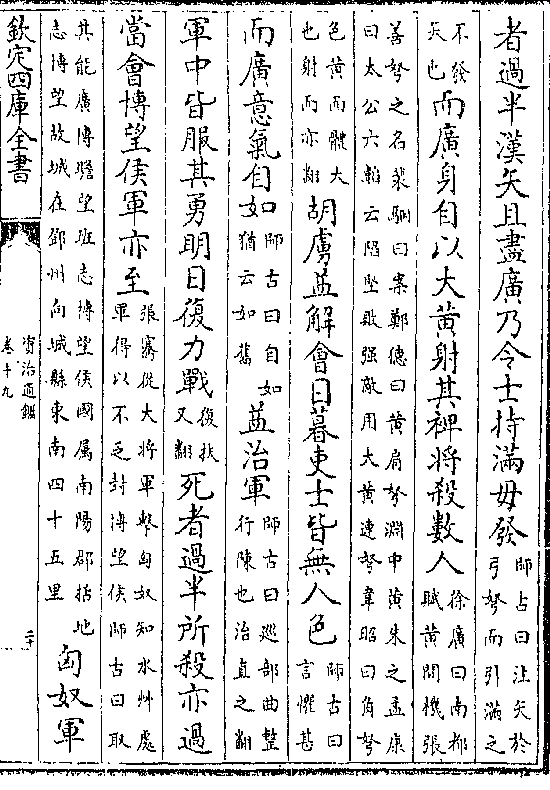 者過半漢矢且盡廣乃令士持滿毋發師古曰注矢於弓弩而引滿之
不發矢也而廣身自以大黄射其裨將殺數人徐廣曰南都賦黄間機張
善弩之名裴駰曰案鄭德曰黄肩弩淵中黄朱之孟康曰太公六韜云陷堅敗强敵用大黄連弩韋昭曰角弩
色黄而體大也射而亦翻胡虜益解會日暮吏士皆無人色師古曰言懼甚
而廣意氣自如師古曰自如猶云如舊益治軍師古曰巡部曲整行陳也治直之翻
軍中皆服其勇明日復力戰復扶又翻死者過半所殺亦過
當會博望侯軍亦至張騫從大將軍擊匈奴知水艸處軍得以不乏封博望侯師古曰取
其能廣博瞻望班志博望侯國屬南陽郡括地志博望故城在鄧州向城縣東南四十五里匈奴軍
欽定四庫全書
資治通鑑
卷十九
二十